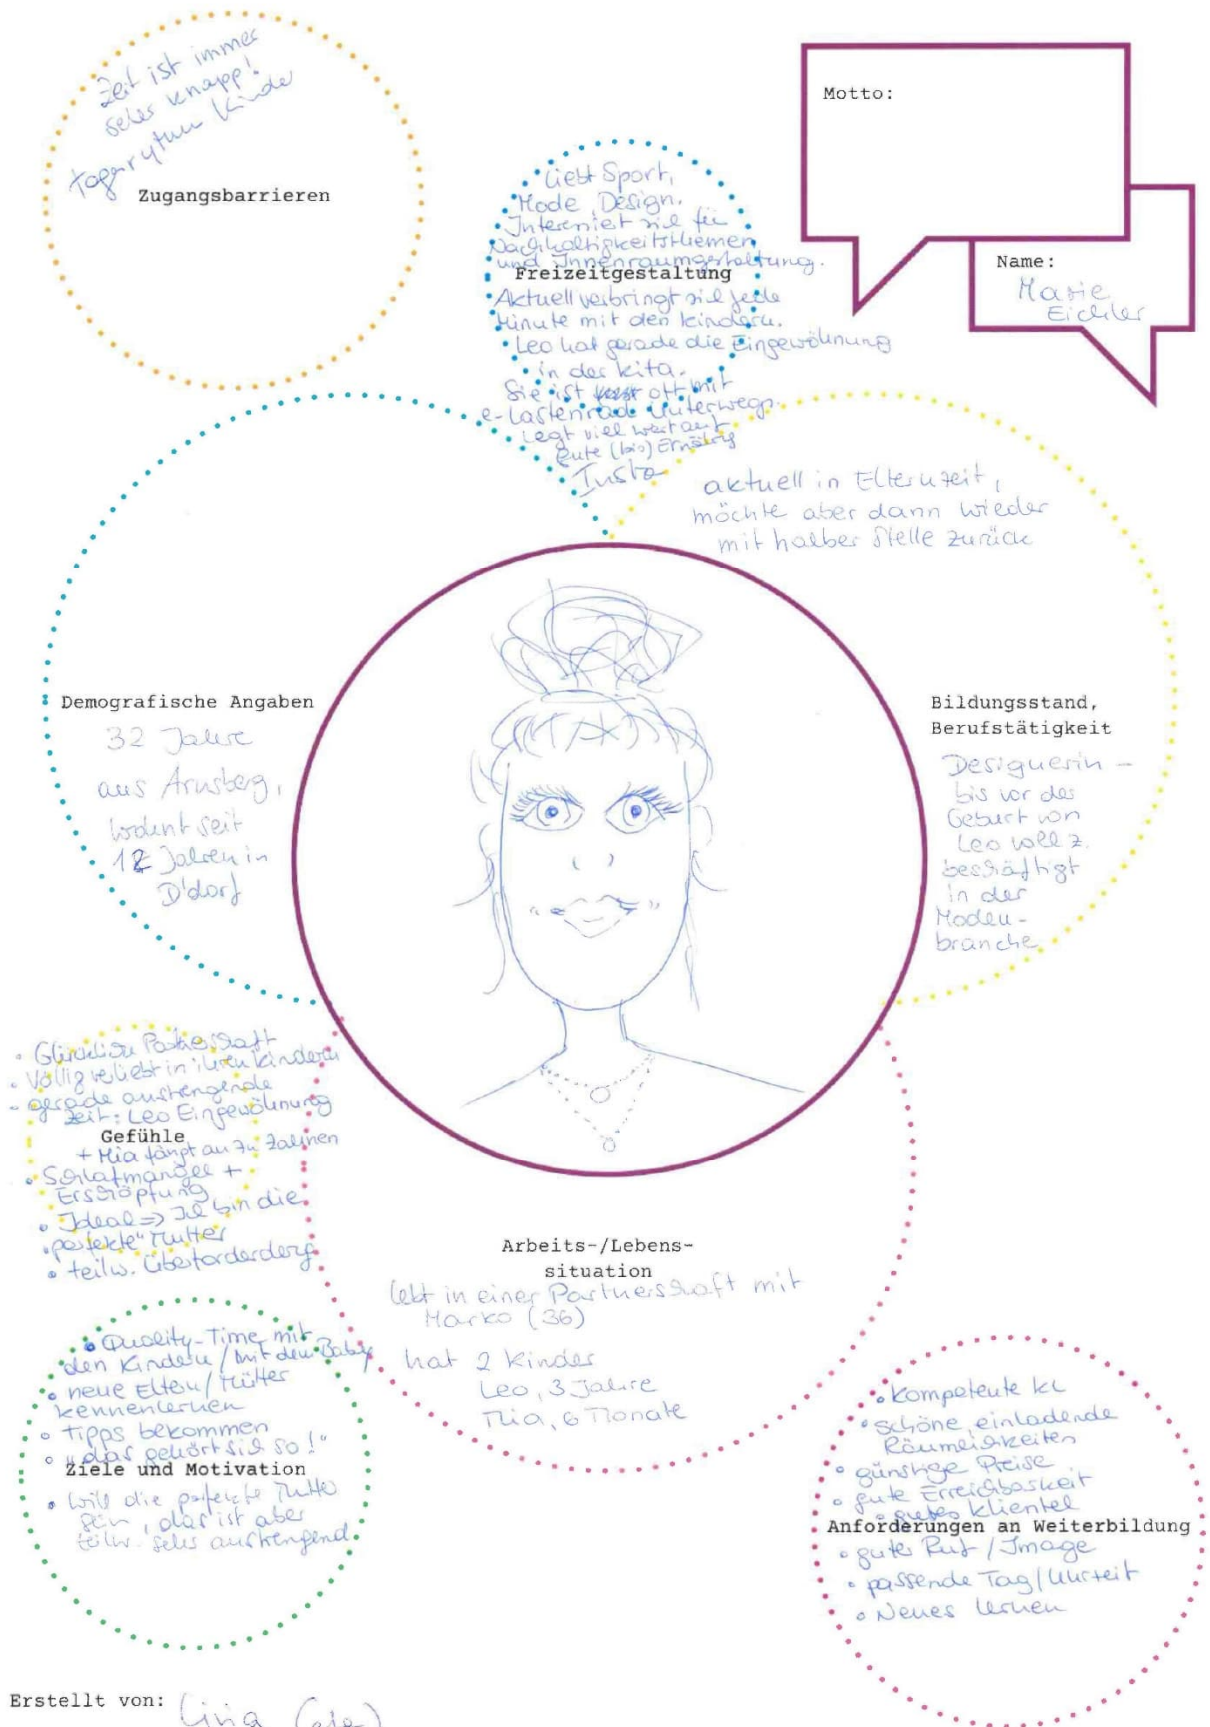 Zeit ist immer
sehr knapp!
Kinder
Zugangsbarrieren
Motto:
Name:
Marie
Eichler
Liebt Sport,
Mode, Design.
Interessiert sich für
Nachhaltigkeitsthemen
und Innenraumgestaltung.
Freizeitgestaltung
Aktuell verbringt sie jede
Minute mit den Kindern.
Leo hat gerade die Eingewöhnung
in der Kita.
Sie ist oft mit
e-Lastenrad unterwegs.
Legt viel wert auf
gute (bio) Ernährg
Insta
aktuell in Elternzeit,
möchte aber dann wieder
mit halber Stelle zurück
Demografische Angaben
32 Jahre
aus Arnsberg,
wohnt seit
12 Jahren in
D'dorf
Bildungsstand,
Berufstätigkeit
Designerin -
bis vor der
Geburt von
Leo voll z.
beschäftigt
in der
Moden-
branche
• Glückliche Partnerschaft
• Völlig verliebt in ihren Kindern
• gerade anstrengende
Zeit: Leo Eingewöhnung
Gefühle
+ Mia fängt an zu Zahnen
• Schlafmangel +
Erschöpfung
• Ideal => Ich bin die
"perfekte" Mutter
• teilw. Überforderderg
Arbeits-/Lebens-
situation
lebt in einer Partnerschaft mit
Marko (36)
hat 2 Kinder
Leo, 3 Jahre
Mia, 6 Monate
• Quality-Time mit
den Kindern / mit dem Baby
• neue Eltern / Mütter
kennenlernen
• Tipps bekommen
• "das gehört sich so!"
Ziele und Motivation
• Will die perfekte Mutter
sein, das ist aber
teilw. sehr anstrengend
• Kompetente KL
• schöne einladende
Räumlichkeiten
• günstige Preise
• gute Erreichbarkeit
• gutes Klientel
Anforderungen an Weiterbildung
• guter Ruf / Image
• passende Tag / Uhrzeit
• Neues lernen
Erstellt von: